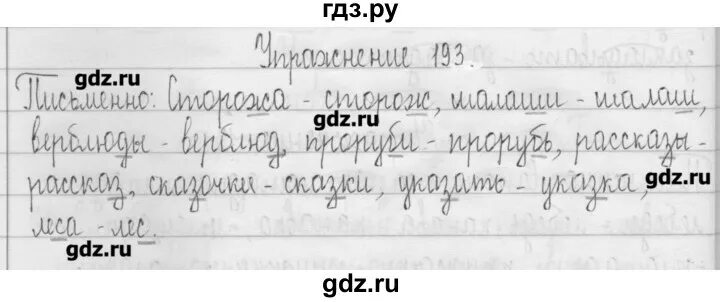 гдз.ру
Упражнение 193.
gdz.ru
Письменно: Сторожа - сторож, шалаши - шалаш,
gdz.ru
gdz.ru
верблюды - верблюд, проруби - прорубь, рассказы -
рассказ, сказочки - сказки, указать - указка,
gdz.ru
леса - лес.
gdz.ru
gdz.ru
gdz.ru